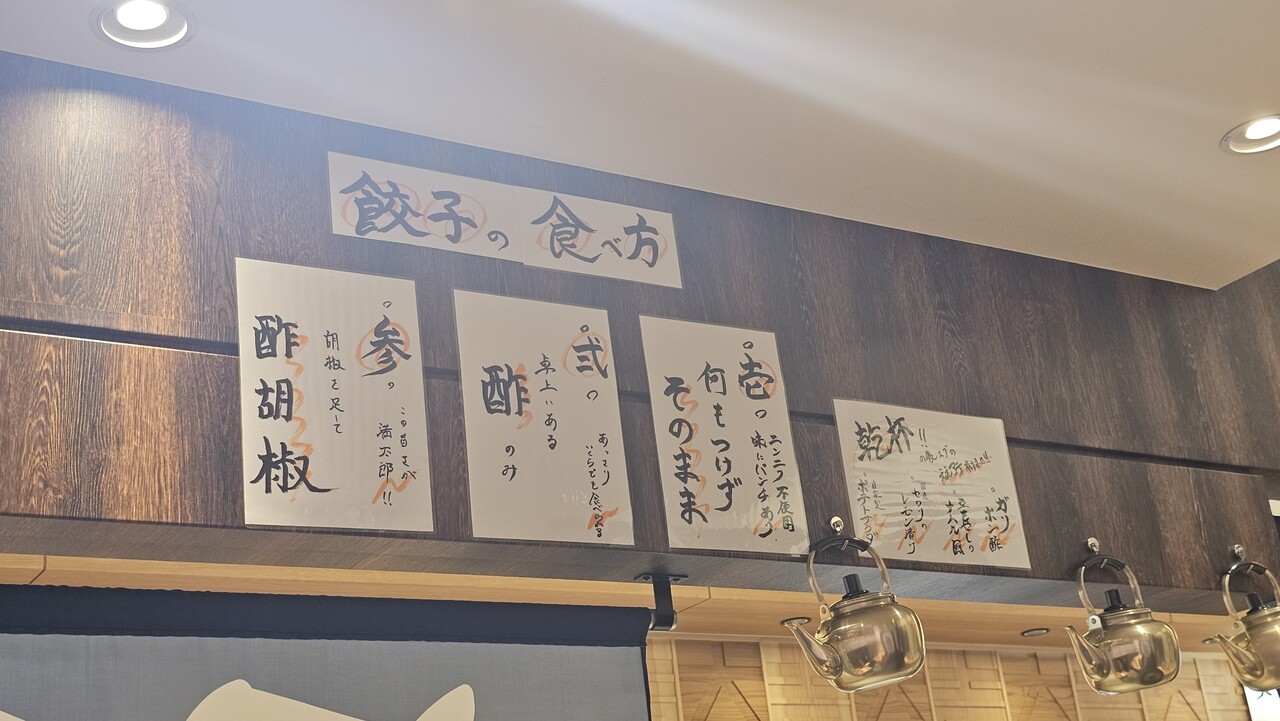 餃子の食べ方
壱の
ニンニク不使用
味にパンチあり
何もつけず
そのまま
弐の
あっさり
いくらでも食べれる
卓上にある
酢
のみ
参の
この旨さが
満太郎!!
胡椒を足して
酢胡椒
乾杯!!
ガリ
ポン酢
ナムル風
セロリの
レモン漬け
ポテトサラダ